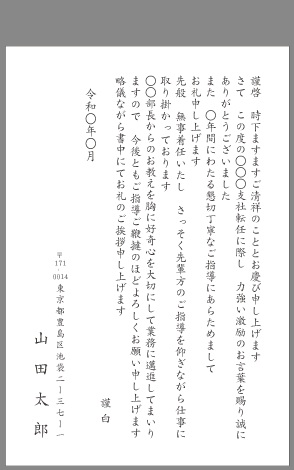 謹啓　時下ますますご清祥のこととお慶び申し上げます
さて　この度の〇〇〇支社転任に際し　力強い激励のお言葉を賜り誠に
ありがとうございました
また　〇年間にわたる懇切丁寧なご指導にあらためまして
お礼申し上げます
先般　無事着任いたし　さっそく先輩方のご指導を仰ぎながら仕事に
取り掛かっております
〇〇部長からのお教えを胸に好奇心を大切にして業務に邁進してまいり
ますので　今後ともご指導ご鞭撻のほどよろしくお願い申し上げます
略儀ながら書中にてお礼のご挨拶申し上げます
謹白
令和〇年〇月
〒171-0014 東京都豊島区池袋二ー三七ー一
山田太郎